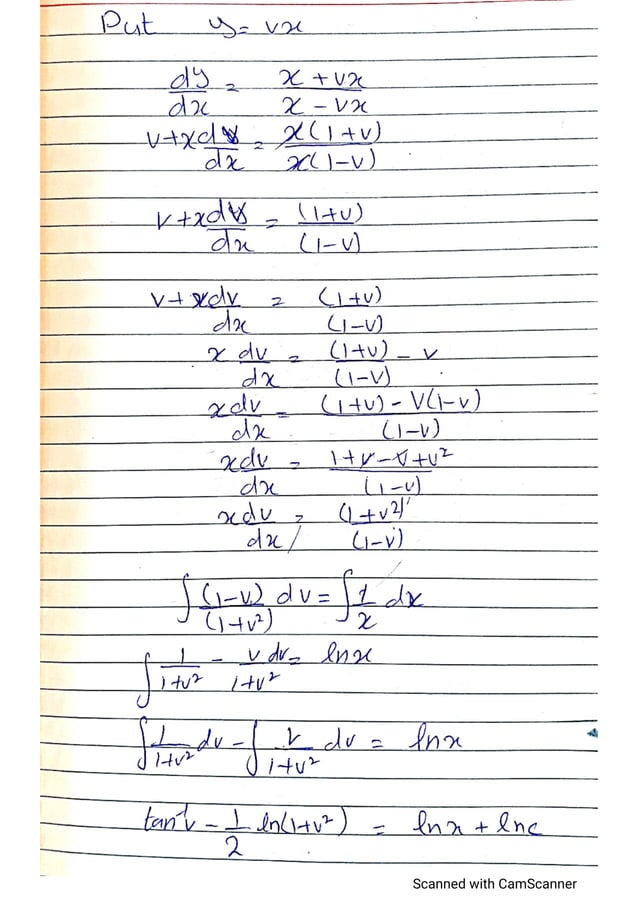 Put y = vx
dy/dx = x + vx / x - vx
v + x dv/dx = x(1+v) / x(1-v)
v + x dv/dx = (1+v) / (1-v)
v + x dv/dx = (1+v) / (1-v)
x dv/dx = (1+v) / (1-v) - v
x dv/dx = (1+v) - v(1-v) / (1-v)
x dv/dx = 1+v-v+v² / (1-v)
x dv/dx = (1+v²) / (1-v)
∫ (1-v) / (1+v²) dv = ∫ 1/x dx
∫ 1 / 1+v² - v dv / 1+v² = ln x
∫ 1 / 1+v² dv - ∫ v / 1+v² dv = ln x
tan⁻¹v - 1/2 ln(1+v²) = ln x + ln c
Scanned with CamScanner